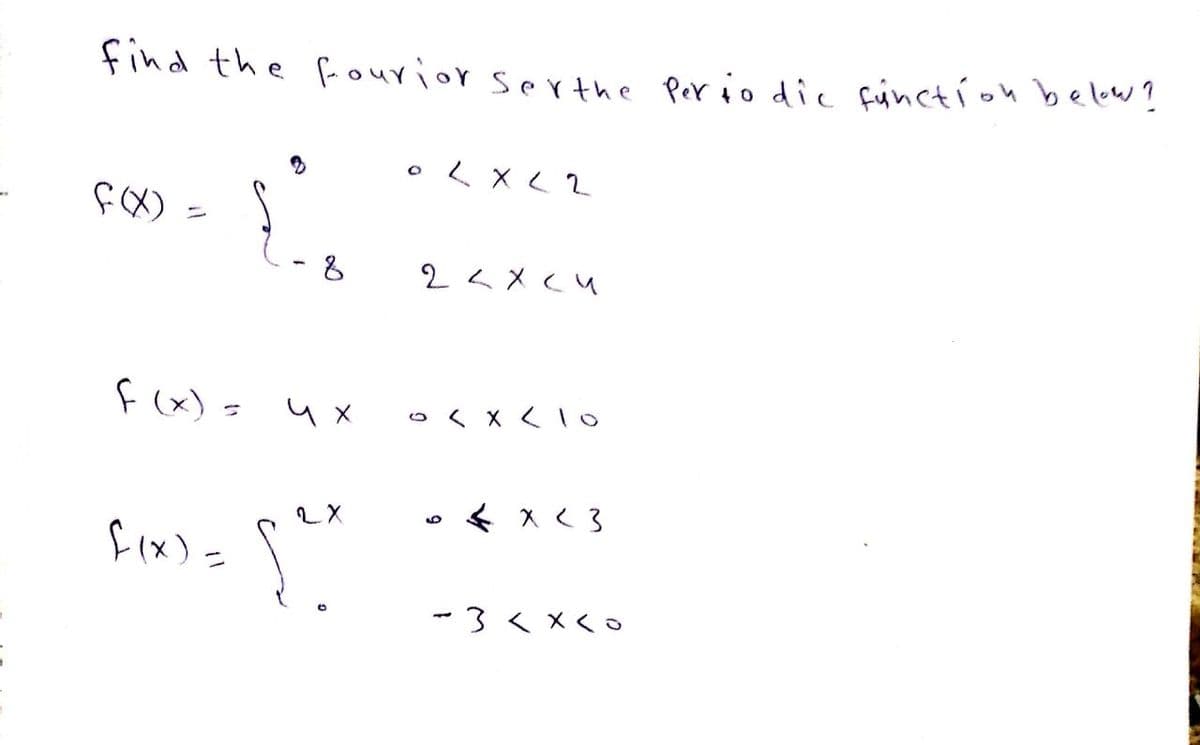 find the fourior serthe Periodic function below?
8 0 < x < 2
f(x) = {
-8 2 < x < 4
f(x) = 4x 0 < x < 10
2x 0 < x < 3
f(x) = {
0 -3 < x < 0